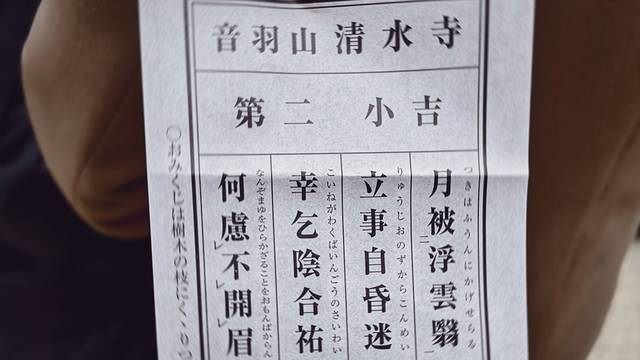 音羽山清水寺
第二 小吉
つきはふうんにかげせらる
月被二浮雲翳一
りゅうじおのずからこんめい
立事自昏迷
こいねがわくばいんごうのさいわい
幸乞陰合祐
なんぞまゆをひらかざることをおもんばからん
何慮レ不レ開レ眉
〇おみくじは樹木の枝にくゝりつ